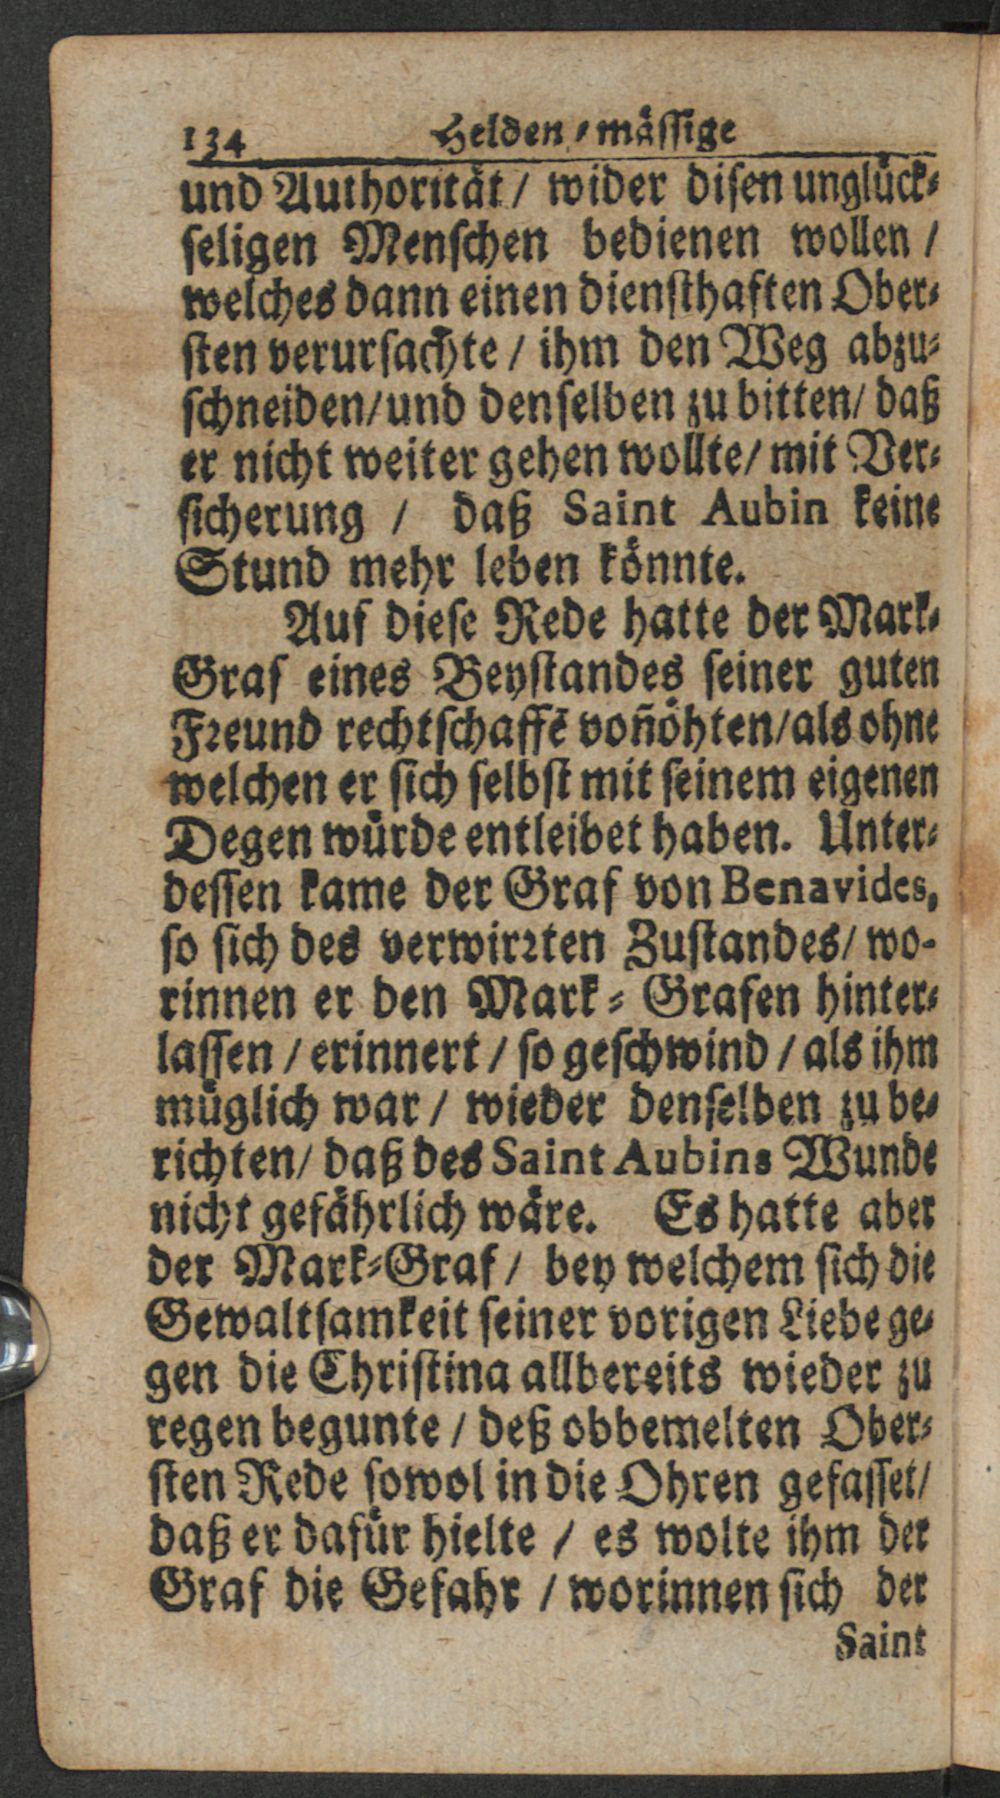 134 Helden-mässige
und Authorität / wider disen unglück-
seligen Menschen bedienen wollen /
welches dann einen diensthaften Ober-
sten verursachte / ihm den Weg abzu-
schneiden/und denselben zu bitten/ daß
er nicht weiter gehen wollte/ mit Ver-
sicherung / daß Saint Aubin keine
Stund mehr leben könnte.
Auf diese Rede hatte der Mark-
Graf eines Beystandes seiner guten
Freund rechtschaffē voñöhten/als ohne
welchen er sich selbst mit seinem eigenen
Degen würde entleibet haben. Unter-
dessen kame der Graf von Benavides,
so sich des verwirrten Zustandes/ wo-
rinnen er den Mark-Grafen hinter-
lassen / erinnert / so geschwind / als ihm
müglich war / wieder denselben zu be-
richten/ daß des Saint Aubins Wunde
nicht gefährlich wäre. Es hatte aber
der Mark-Graf / bey welchem sich die
Gewaltsamkeit seiner vorigen Liebe ge-
gen die Christina allbereits wieder zu
regen begunte / deß obbemelten Ober-
sten Rede sowol in die Ohren gefasset/
daß er dafür hielte / es wolte ihm der
Graf die Gefahr / worinnen sich der
Saint